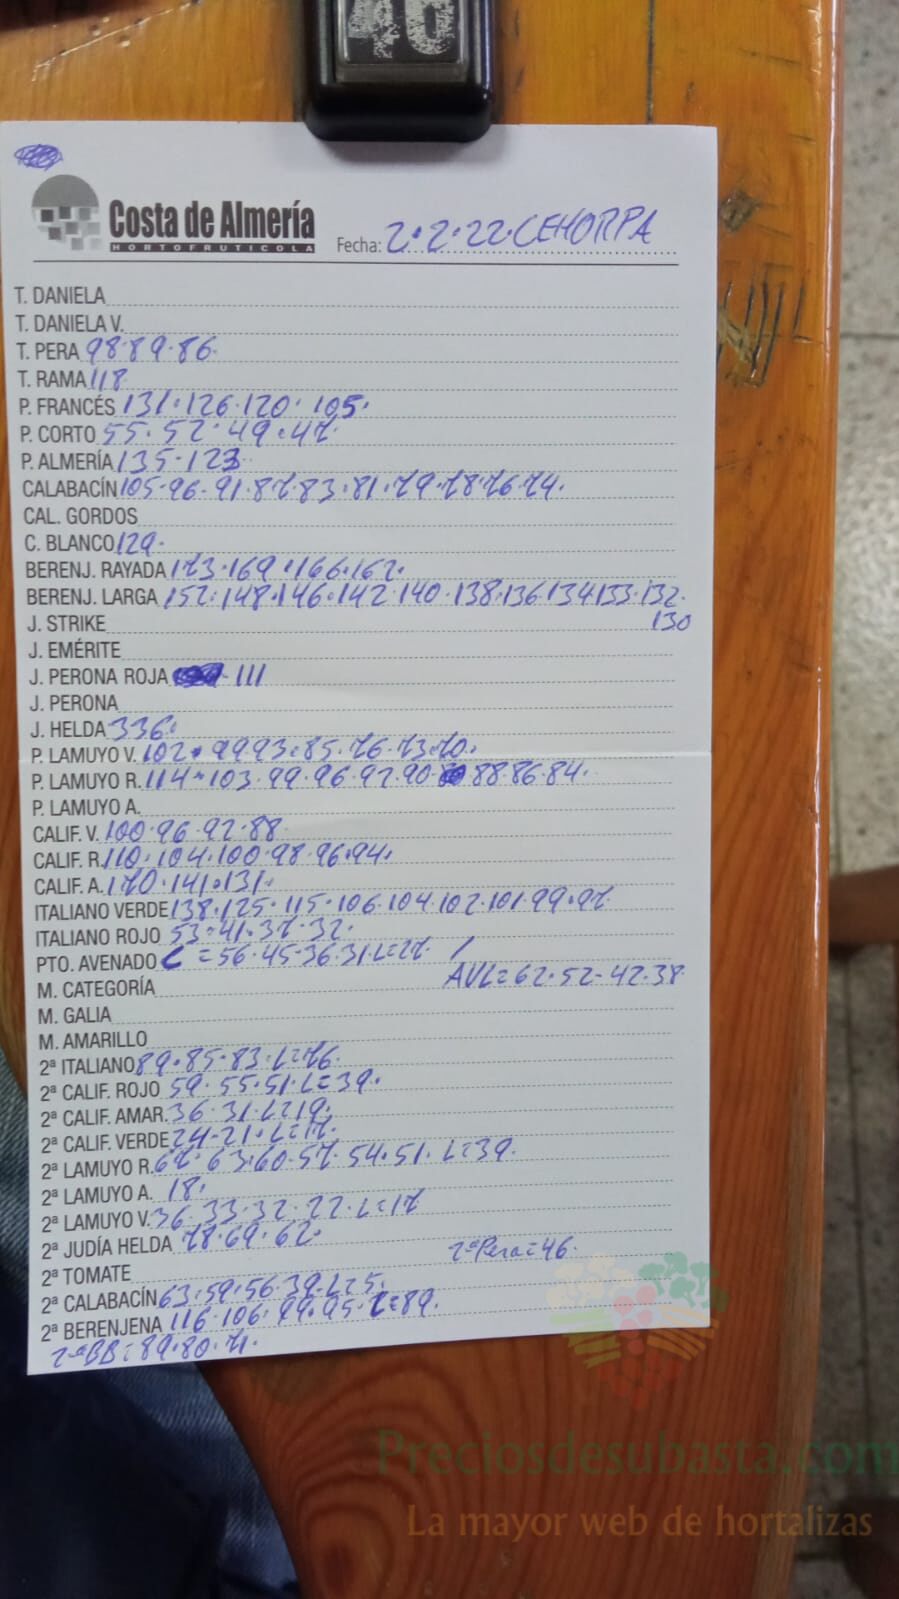 46
Costa de Almería
HORTOFRUTICOLA
Fecha: 2·2·22·CEHORPA
T. DANIELA
T. DANIELA V.
T. PERA 98·89·86·
T. RAMA 118
P. FRANCÉS 131·126·120·105·
P. CORTO 55·52·49·47·
P. ALMERÍA 135·123
CALABACÍN 105·96·91·87·83·81·79·78·76·74·
CAL. GORDOS
C. BLANCO 129·
BERENJ. RAYADA 173·169·166·162·
BERENJ. LARGA 152·148·146·142·140·138·136·134·133·132·
J. STRIKE 130
J. EMÉRITE
J. PERONA ROJA 111
J. PERONA
J. HELDA 336·
P. LAMUYO V. 102·99·93·85·76·73·70·
P. LAMUYO R. 114·103·99·96·92·90·88·86·84·
P. LAMUYO A.
CALIF. V. 100·96·92·88
CALIF. R. 110·104·100·98·96·94·
CALIF. A. 170·141·131·
ITALIANO VERDE 138·125·115·106·104·102·101·99·97·
ITALIANO ROJO 53·41·37·32·
PTO. AVENADO C=56·45·36·31·L=27· /
M. CATEGORÍA AVL=62·52·42·38
M. GALIA
M. AMARILLO
2ª ITALIANO 89·85·83·L=76·
2ª CALIF. ROJO 59·55·51·L=39·
2ª CALIF. AMAR. 36·31·L=19·
2ª CALIF. VERDE 24·21·L=17·
2ª LAMUYO R. 67·63·60·57·54·51·L=39·
2ª LAMUYO A. 18·
2ª LAMUYO V. 36·33·32·22·L=17
2ª JUDÍA HELDA 78·69·62·
2ª TOMATE 2ªPera=46·
2ª CALABACÍN 63·59·56·39·L=5·
2ª BERENJENA 116·106·99·95·L=89·
2ªBB=89·80·71·
Preciosdesubasta.com
La mayor web de hortalizas